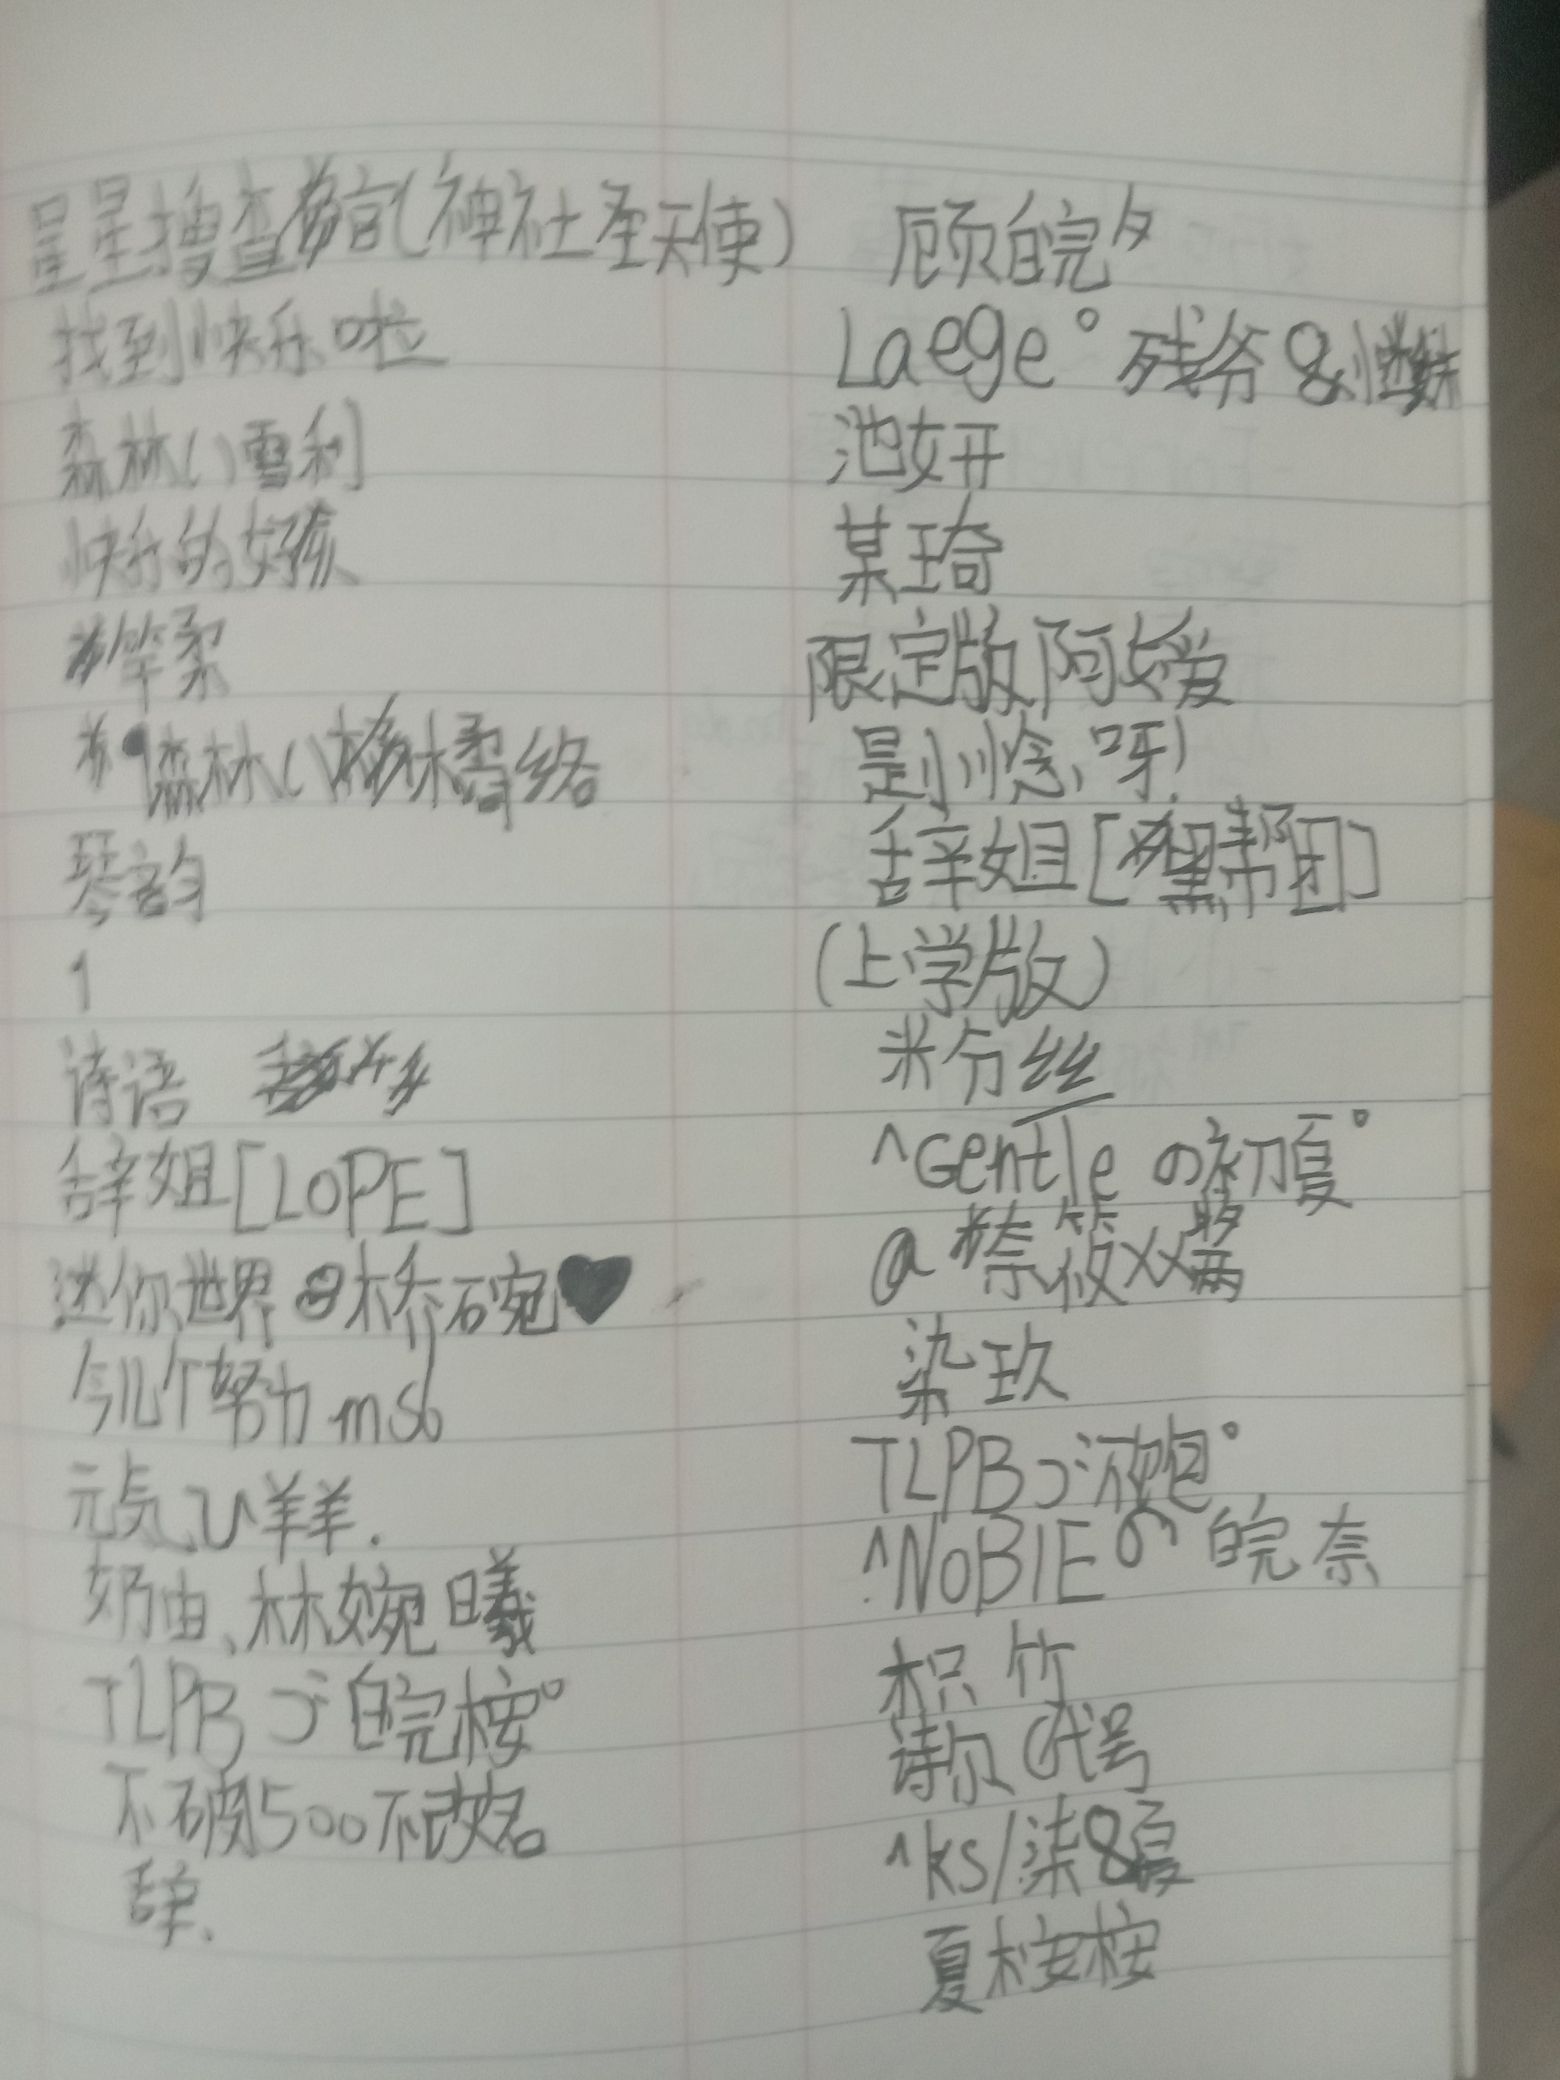 星星搜查官(神社圣天使)
找到快乐啦
森林()雪利
快乐的女孩
竿柔
森林()橘络
琴韵
1
诗语
辞姐[LOPE]
迷你世界 桥碗♥
今儿个努力 ms6
元気ひ羊羊.
奶由、林婉曦
TLPB づ皖桉°
不破500不改名
辞.
顾皖夕
Laege°残爷&
池妍
某琦
限定版阿嫒
是小惗呀!
辞姐[黑帮团]
(上学版)
粉丝
^Gentle の初夏°
@柰筱
染玖
TLPBづ°
^NoBIE の 皖奈
枳竹
诗尔@代号
^ks/柒&夏
夏桉桉